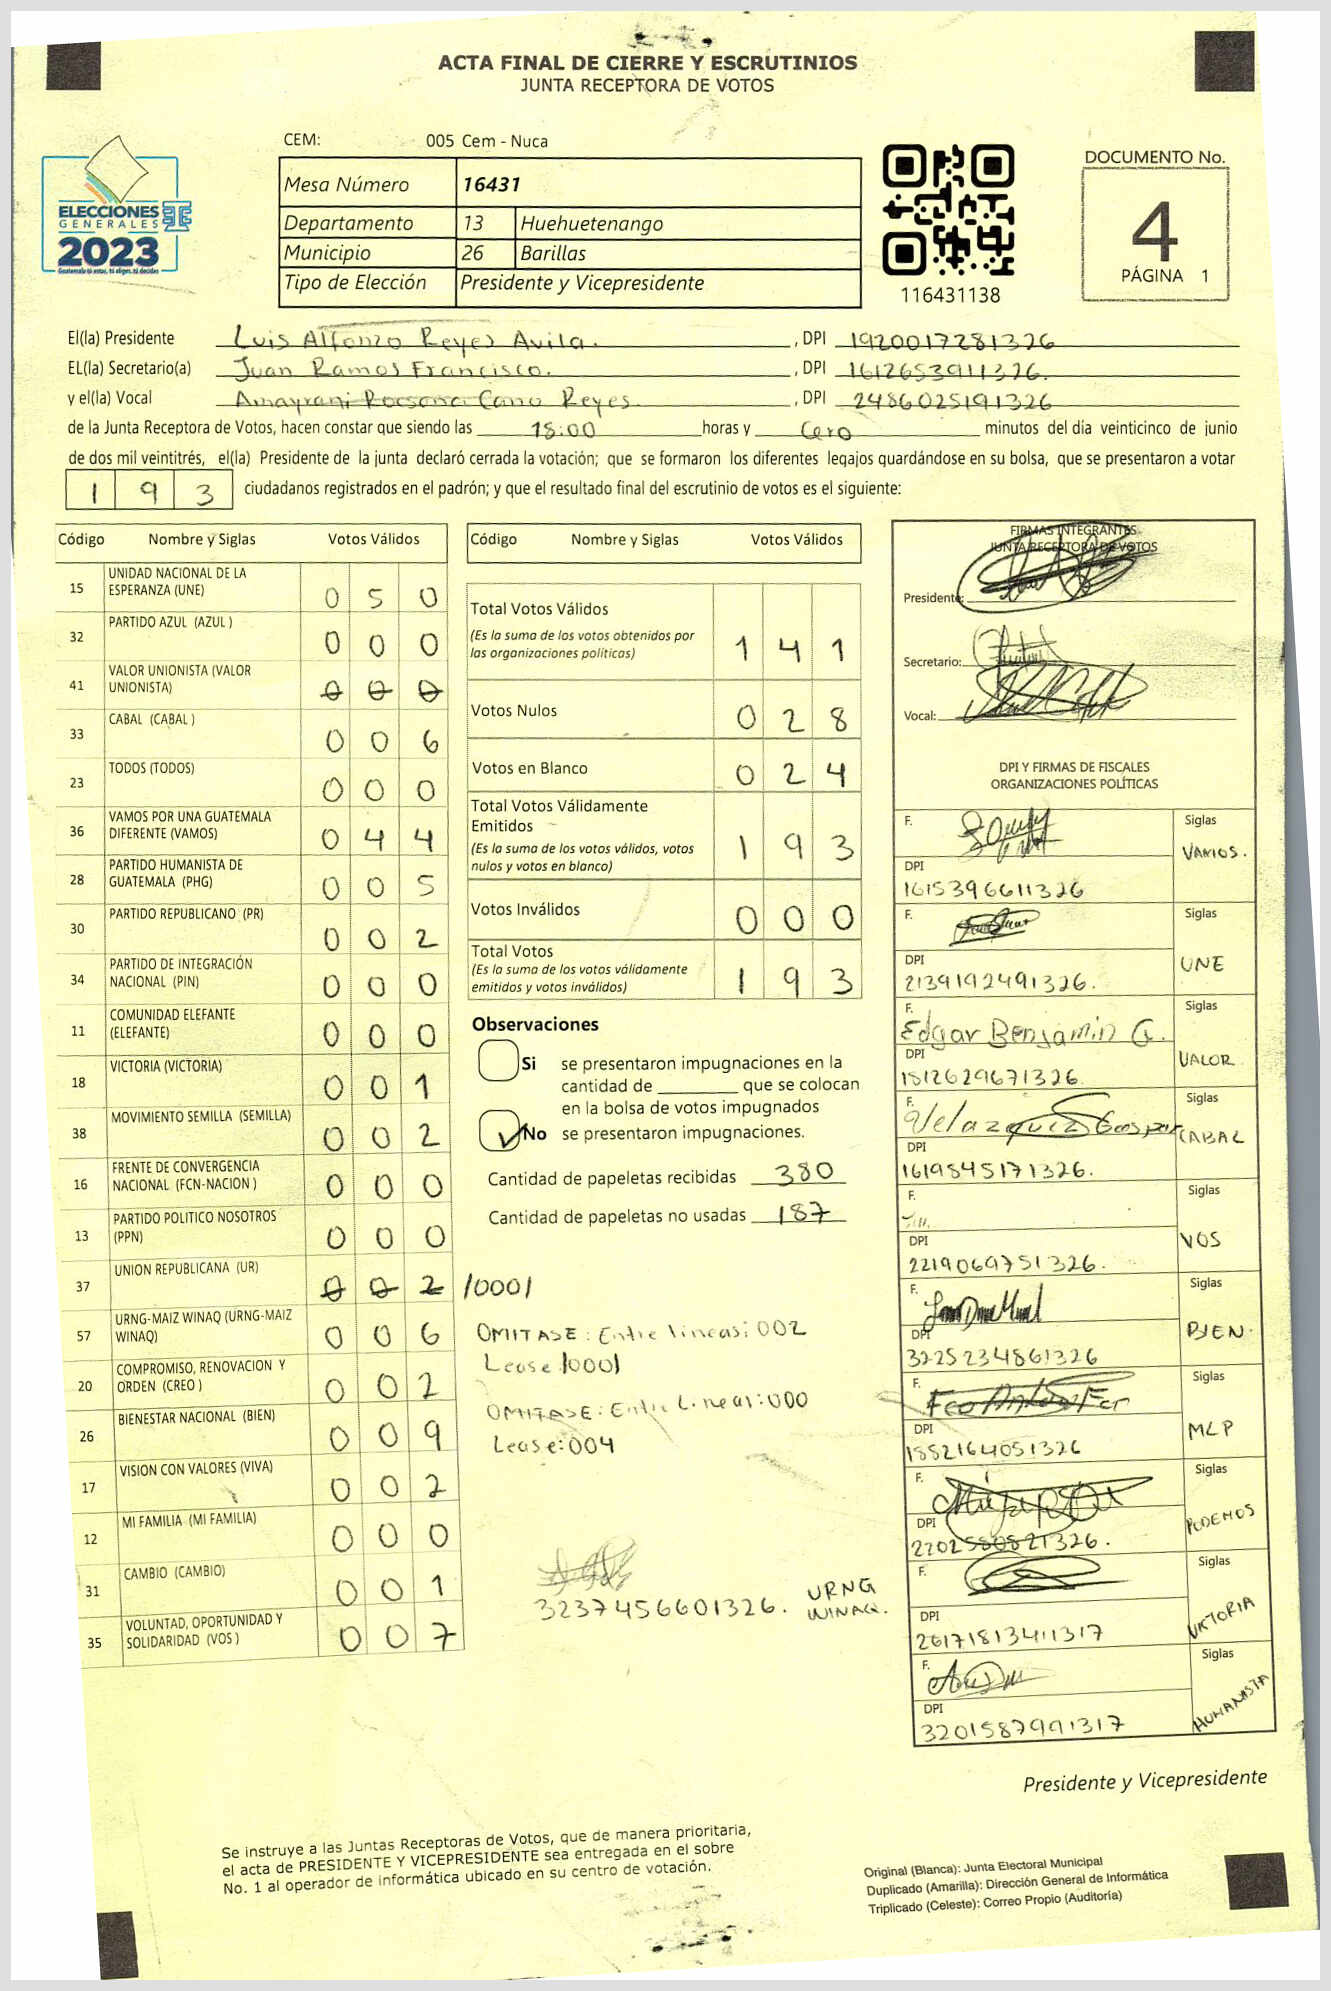 ACTA FINAL DE CIERRE Y ESCRUTINIOS
JUNTA RECEPTORA DE VOTOS
CEM: 005 Cem - Nuca
ELECCIONES
GENERALES
2023
Guatemala tú estás, tú eliges, tú decides
Mesa Número 16431
Departamento 13 Huehuetenango
Municipio 26 Barillas
Tipo de Elección Presidente y Vicepresidente
116431138
DOCUMENTO No.
4
PÁGINA 1
El(la) Presidente Luis Alfonzo Reyes Avila. , DPI 1920017281326
EL(la) Secretario(a) Juan Ramos Francisco. , DPI 1612653911326.
y el(la) Vocal Amayrani Rocsana Cano Reyes. , DPI 2486025191326
de la Junta Receptora de Votos, hacen constar que siendo las 18:00 horas y Cero minutos del día veinticinco de junio
de dos mil veintitrés, el(la) Presidente de la junta declaró cerrada la votación; que se formaron los diferentes legajos quardándose en su bolsa, que se presentaron a votar
1 9 3 ciudadanos registrados en el padrón; y que el resultado final del escrutinio de votos es el siguiente:
Código Nombre y Siglas Votos Válidos
15 UNIDAD NACIONAL DE LA ESPERANZA (UNE) 0 5 0
32 PARTIDO AZUL (AZUL ) 0 0 0
41 VALOR UNIONISTA (VALOR UNIONISTA) 0 0 0
33 CABAL (CABAL ) 0 0 6
23 TODOS (TODOS) 0 0 0
36 VAMOS POR UNA GUATEMALA DIFERENTE (VAMOS) 0 4 4
28 PARTIDO HUMANISTA DE GUATEMALA (PHG) 0 0 5
30 PARTIDO REPUBLICANO (PR) 0 0 2
34 PARTIDO DE INTEGRACIÓN NACIONAL (PIN) 0 0 0
11 COMUNIDAD ELEFANTE (ELEFANTE) 0 0 0
18 VICTORIA (VICTORIA) 0 0 1
38 MOVIMIENTO SEMILLA (SEMILLA) 0 0 2
16 FRENTE DE CONVERGENCIA NACIONAL (FCN-NACION ) 0 0 0
13 PARTIDO POLITICO NOSOTROS (PPN) 0 0 0
37 UNION REPUBLICANA (UR) 0 0 2 /0001
57 URNG-MAIZ WINAQ (URNG-MAIZ WINAQ) 0 0 6
20 COMPROMISO, RENOVACION Y ORDEN (CREO ) 0 0 2
26 BIENESTAR NACIONAL (BIEN) 0 0 9
17 VISION CON VALORES (VIVA) 0 0 2
12 MI FAMILIA (MI FAMILIA) 0 0 0
31 CAMBIO (CAMBIO) 0 0 1
35 VOLUNTAD, OPORTUNIDAD Y SOLIDARIDAD (VOS ) 0 0 7
Código Nombre y Siglas Votos Válidos
Total Votos Válidos 1 4 1
(Es la suma de los votos obtenidos por
las organizaciones políticas)
Votos Nulos 0 2 8
Votos en Blanco 0 2 4
Total Votos Válidamente
Emitidos 1 9 3
(Es la suma de los votos válidos, votos
nulos y votos en blanco)
Votos Inválidos 0 0 0
Total Votos 1 9 3
(Es la suma de los votos válidamente
emitidos y votos inválidos)
Observaciones
Si se presentaron impugnaciones en la
cantidad de ________ que se colocan
en la bolsa de votos impugnados
No se presentaron impugnaciones.
Cantidad de papeletas recibidas 380
Cantidad de papeletas no usadas 187
OMITASE: Entre lineas: 002
Lease /0001
OMITASE: Entre Lineas: 000
Lease: 004
3237456601326. URNG
WINAQ.
FIRMAS INTEGRANTES
JUNTA RECEPTORA DE VOTOS
Presidente:
Secretario:
Vocal:
DPI Y FIRMAS DE FISCALES
ORGANIZACIONES POLÍTICAS
F. Siglas
VAMOS.
DPI
1615396611326
F. Siglas
UNE
DPI
2139192491326.
F. Siglas
Edgar Benjamin G.
VALOR
DPI
1812629671326
F. Siglas
Velazquiz Gaspar
CABAL
DPI
1619845171326.
F. Siglas
VOS
DPI
2219069751326.
F. Siglas
BIEN.
DPI
3225234861326
F. Siglas
MLP
DPI
1882164051326
F. Siglas
PODEMOS
DPI
2202580821326.
F. Siglas
VIKTORIA
DPI
2617181341317
F. Siglas
HUMANISTA
DPI
3201587991317
Presidente y Vicepresidente
Se instruye a las Juntas Receptoras de Votos, que de manera prioritaria,
el acta de PRESIDENTE Y VICEPRESIDENTE sea entregada en el sobre
No. 1 al operador de informática ubicado en su centro de votación.
Original (Blanca): Junta Electoral Municipal
Duplicado (Amarilla): Dirección General de Informática
Triplicado (Celeste): Correo Propio (Auditoría)